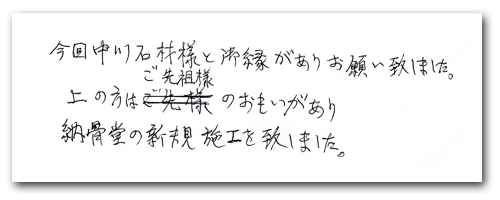 今回中川石材様と御縁がありお願い致ました。
ご先祖様
上の方はご先様のおもいがあり
納骨堂の新規施工を致しました。